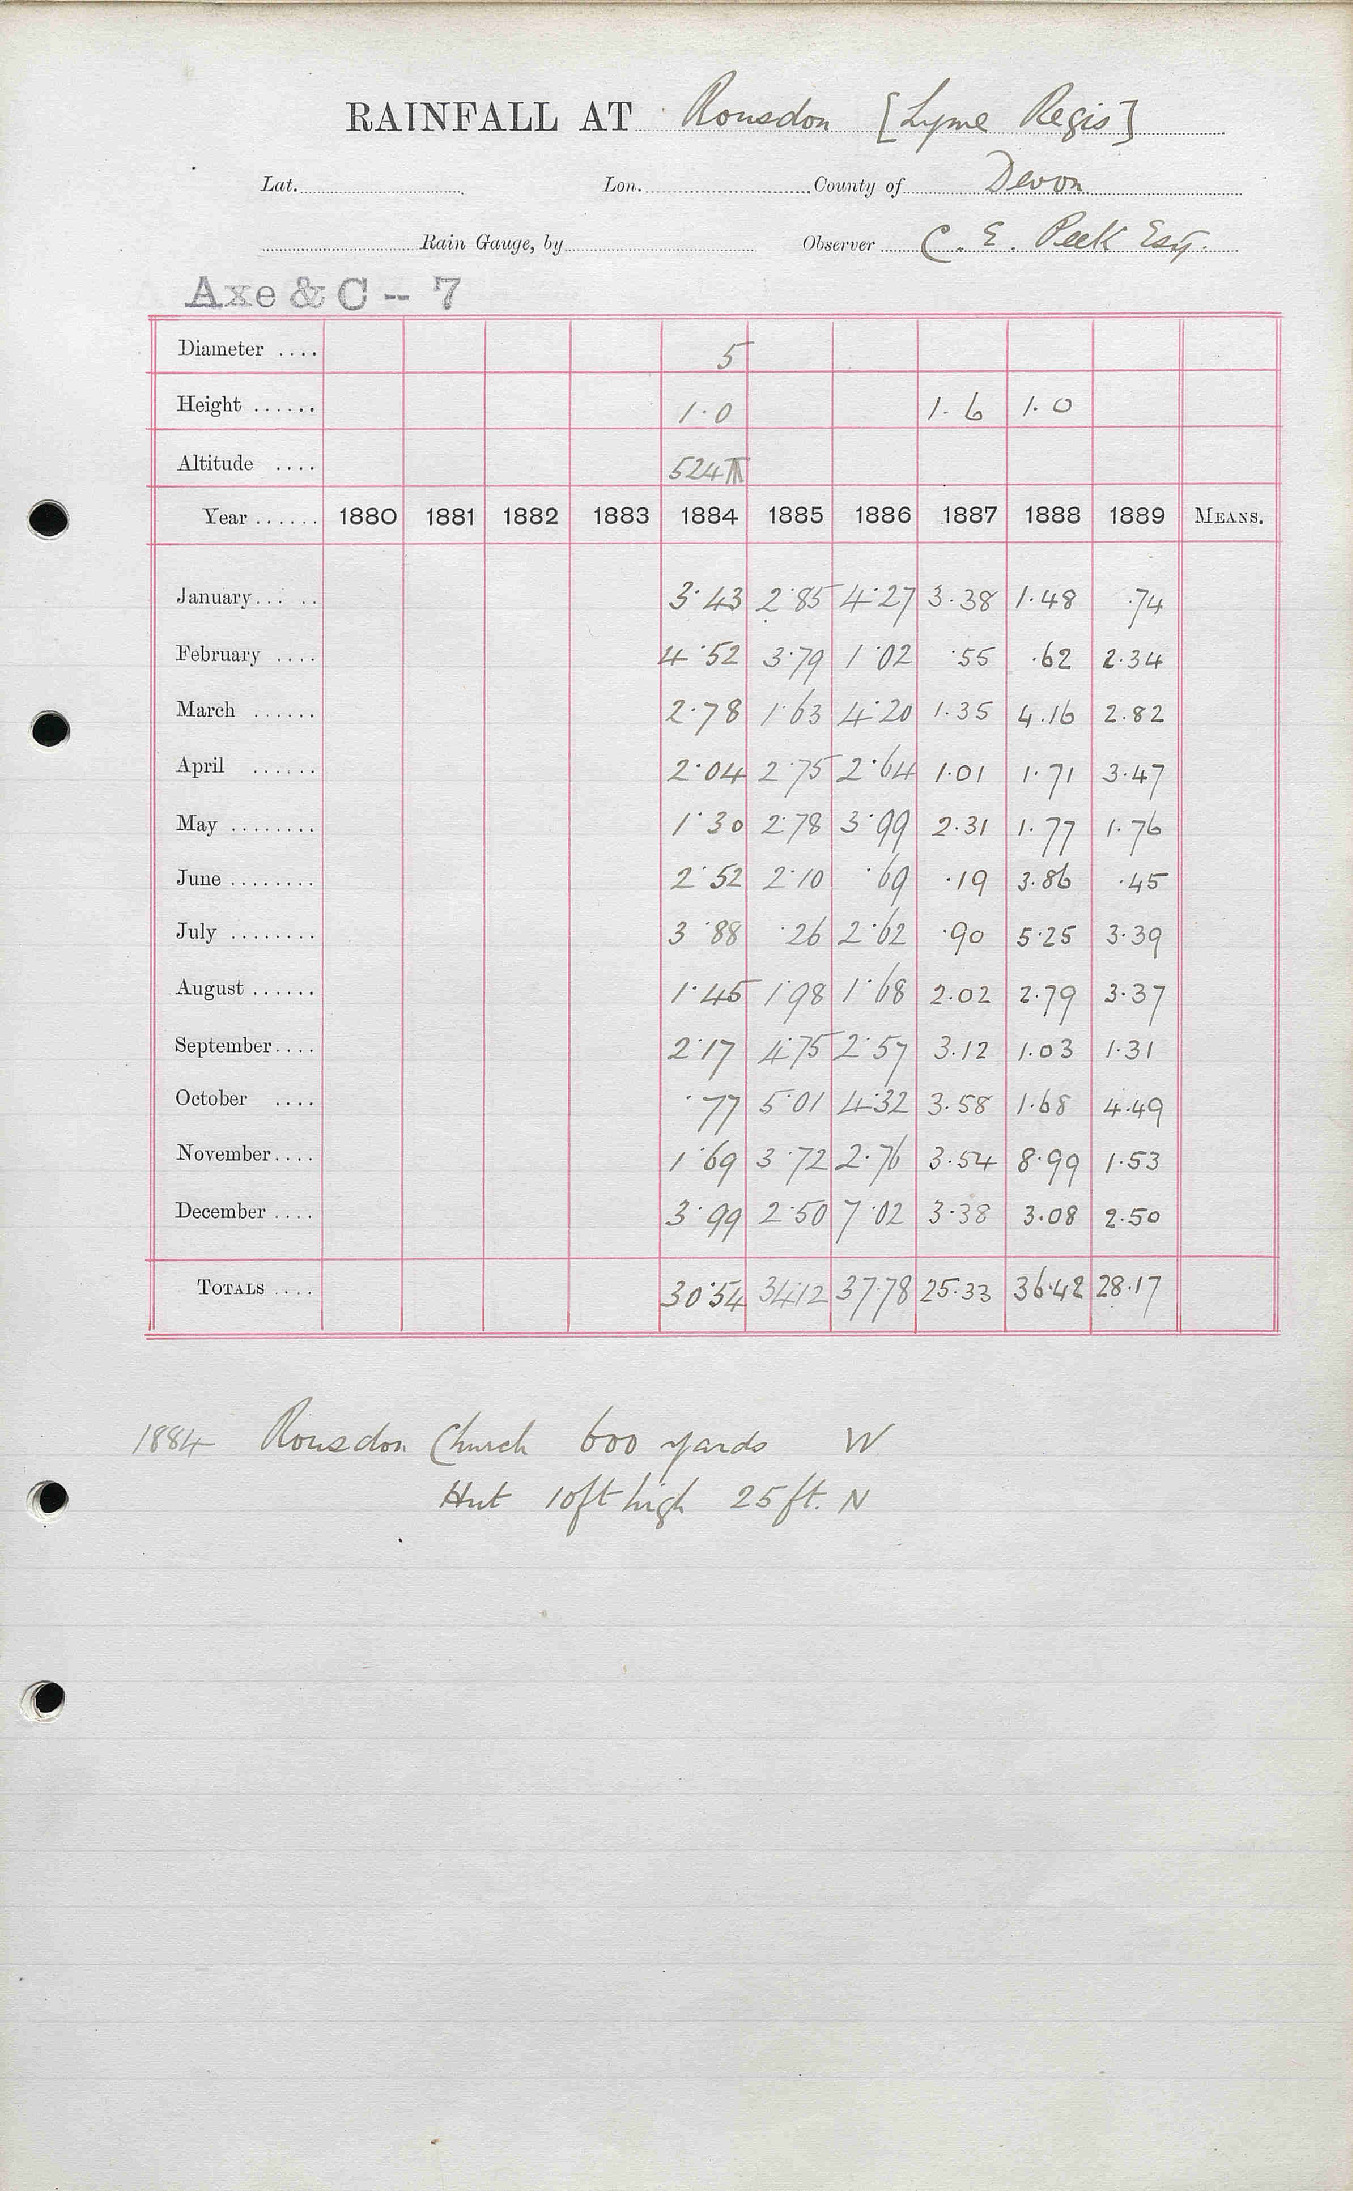 RAINFALL AT Rousdon [Lyme Regis]
Lat. Lon. County of Devon
Rain Gauge, by Observer C. E. Peek Esq.
Axe & C - 7
Diameter .... 5
Height ...... 1.0 1.6 1.0
Altitude .... 524
Year ...... 1880 1881 1882 1883 1884 1885 1886 1887 1888 1889 MEANS.
January... .. 3.43 2.85 4.27 3.38 1.48 .74
February .... 4.52 3.79 1.02 .55 .62 2.34
March ...... 2.78 1.63 4.20 1.35 4.16 2.82
April ...... 2.04 2.75 2.64 1.01 1.71 3.47
May ........ 1.30 2.78 3.99 2.31 1.77 1.76
June ........ 2.52 2.10 .69 .19 3.86 .45
July ........ 3.88 .26 2.62 .90 5.25 3.39
August ...... 1.45 1.98 1.68 2.02 2.79 3.37
September.... 2.17 4.75 2.57 3.12 1.03 1.31
October .... .77 5.01 4.32 3.58 1.68 4.49
November.... 1.69 3.72 2.76 3.54 8.99 1.53
December .... 3.99 2.50 7.02 3.38 3.08 2.50
TOTALS .... 30.54 34.12 37.78 25.33 36.42 28.17
1884 Rousdon Church 600 yards W
Hut 10ft high 25ft. N